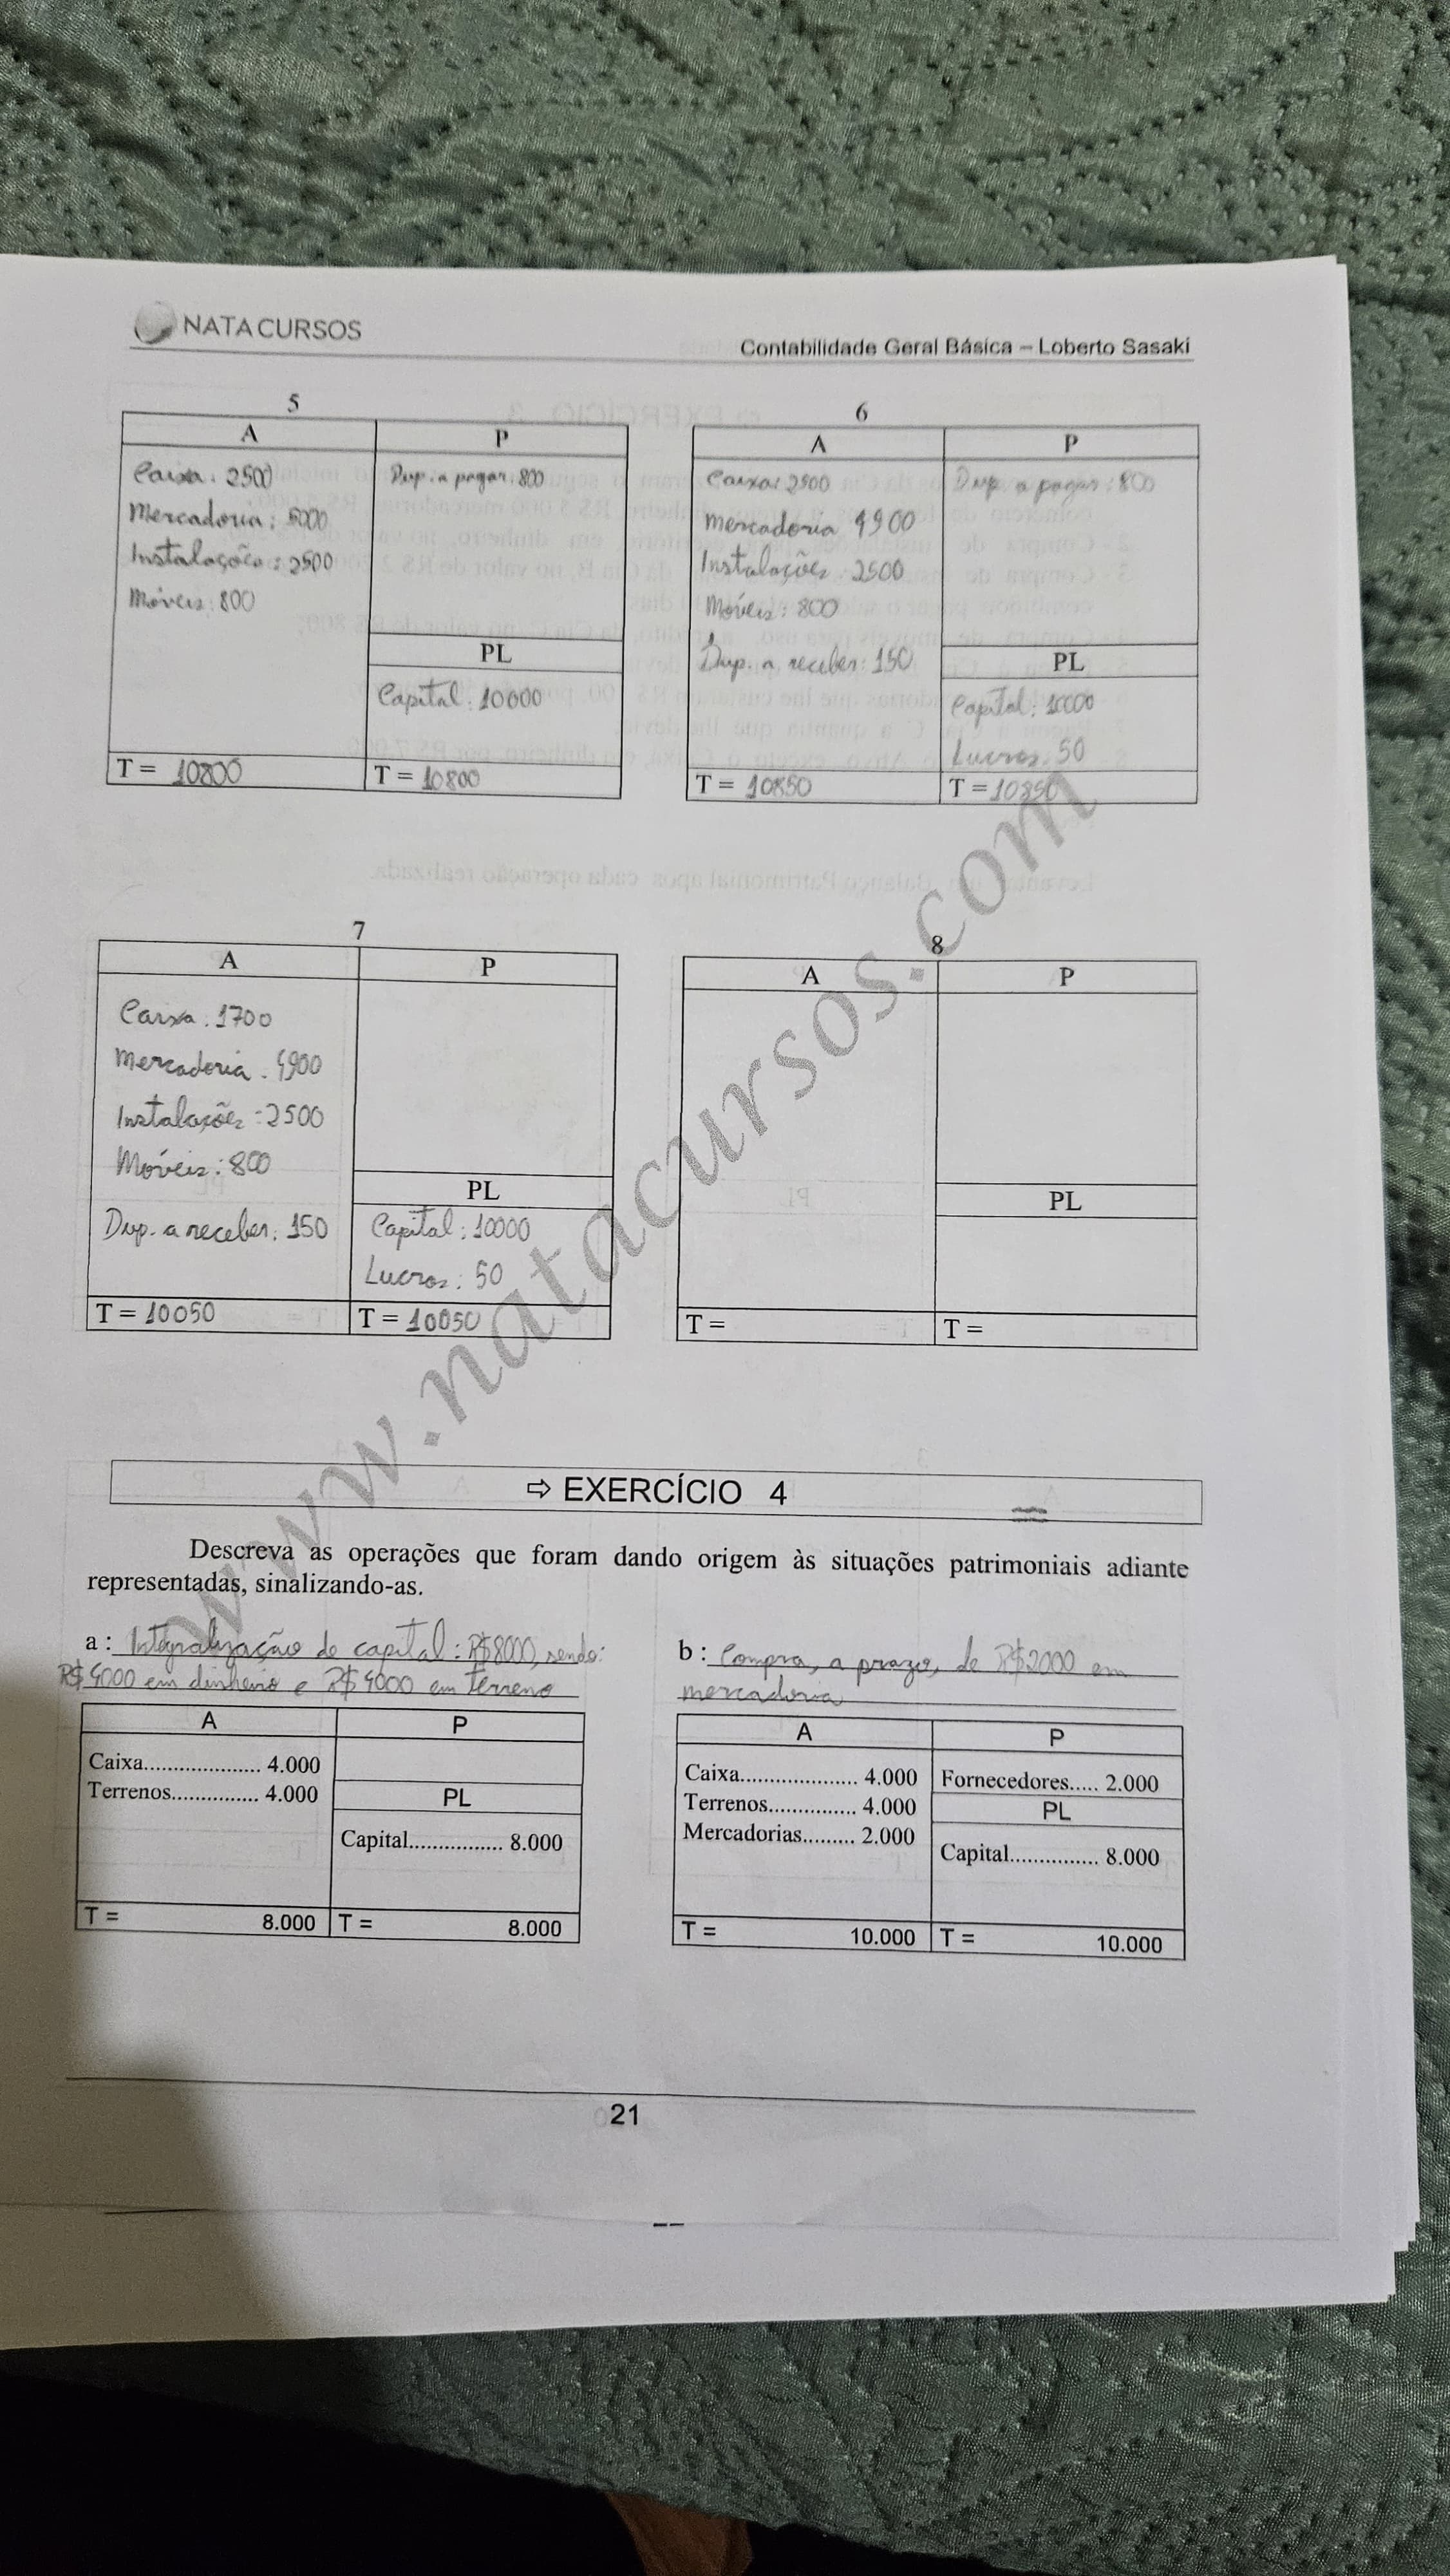 NATA CURSOS
Contabilidade Geral Básica – Loberto Sasaki
5
A P
Caixa: 2500 Dup. a pagar: 800
Mercadoria: 5000
Instalações: 2500
Móveis: 800
PL
Capital: 10000
T = 10800 T = 10800
6
A P
Caixa: 2500 Dup. a pagar: 800
Mercadoria 4900
Instalações: 2500
Móveis: 800
Dup. a receber: 150 PL
Capital: 10000
Lucros: 50
T = 10850 T = 10850
7
A P
Caixa: 1700
Mercadoria: 4900
Instalações: 2500
Móveis: 800
PL
Dup. a receber: 150 Capital: 10000
Lucros: 50
T = 10050 T = 10050
8
A P
PL
T = T =
www.natacursos.com
⇨ EXERCÍCIO 4
Descreva as operações que foram dando origem às situações patrimoniais adiante
representadas, sinalizando-as.
a : Integralização de capital: R$8000, sendo:
R$4000 em dinheiro e R$4000 em terreno
A P
Caixa..................... 4.000
Terrenos............... 4.000 PL
Capital................. 8.000
T = 8.000 T = 8.000
b : Compra, a prazo, de R$2000 em
mercadoria
A P
Caixa..................... 4.000 Fornecedores..... 2.000
Terrenos............... 4.000 PL
Mercadorias......... 2.000
Capital................ 8.000
T = 10.000 T = 10.000
21